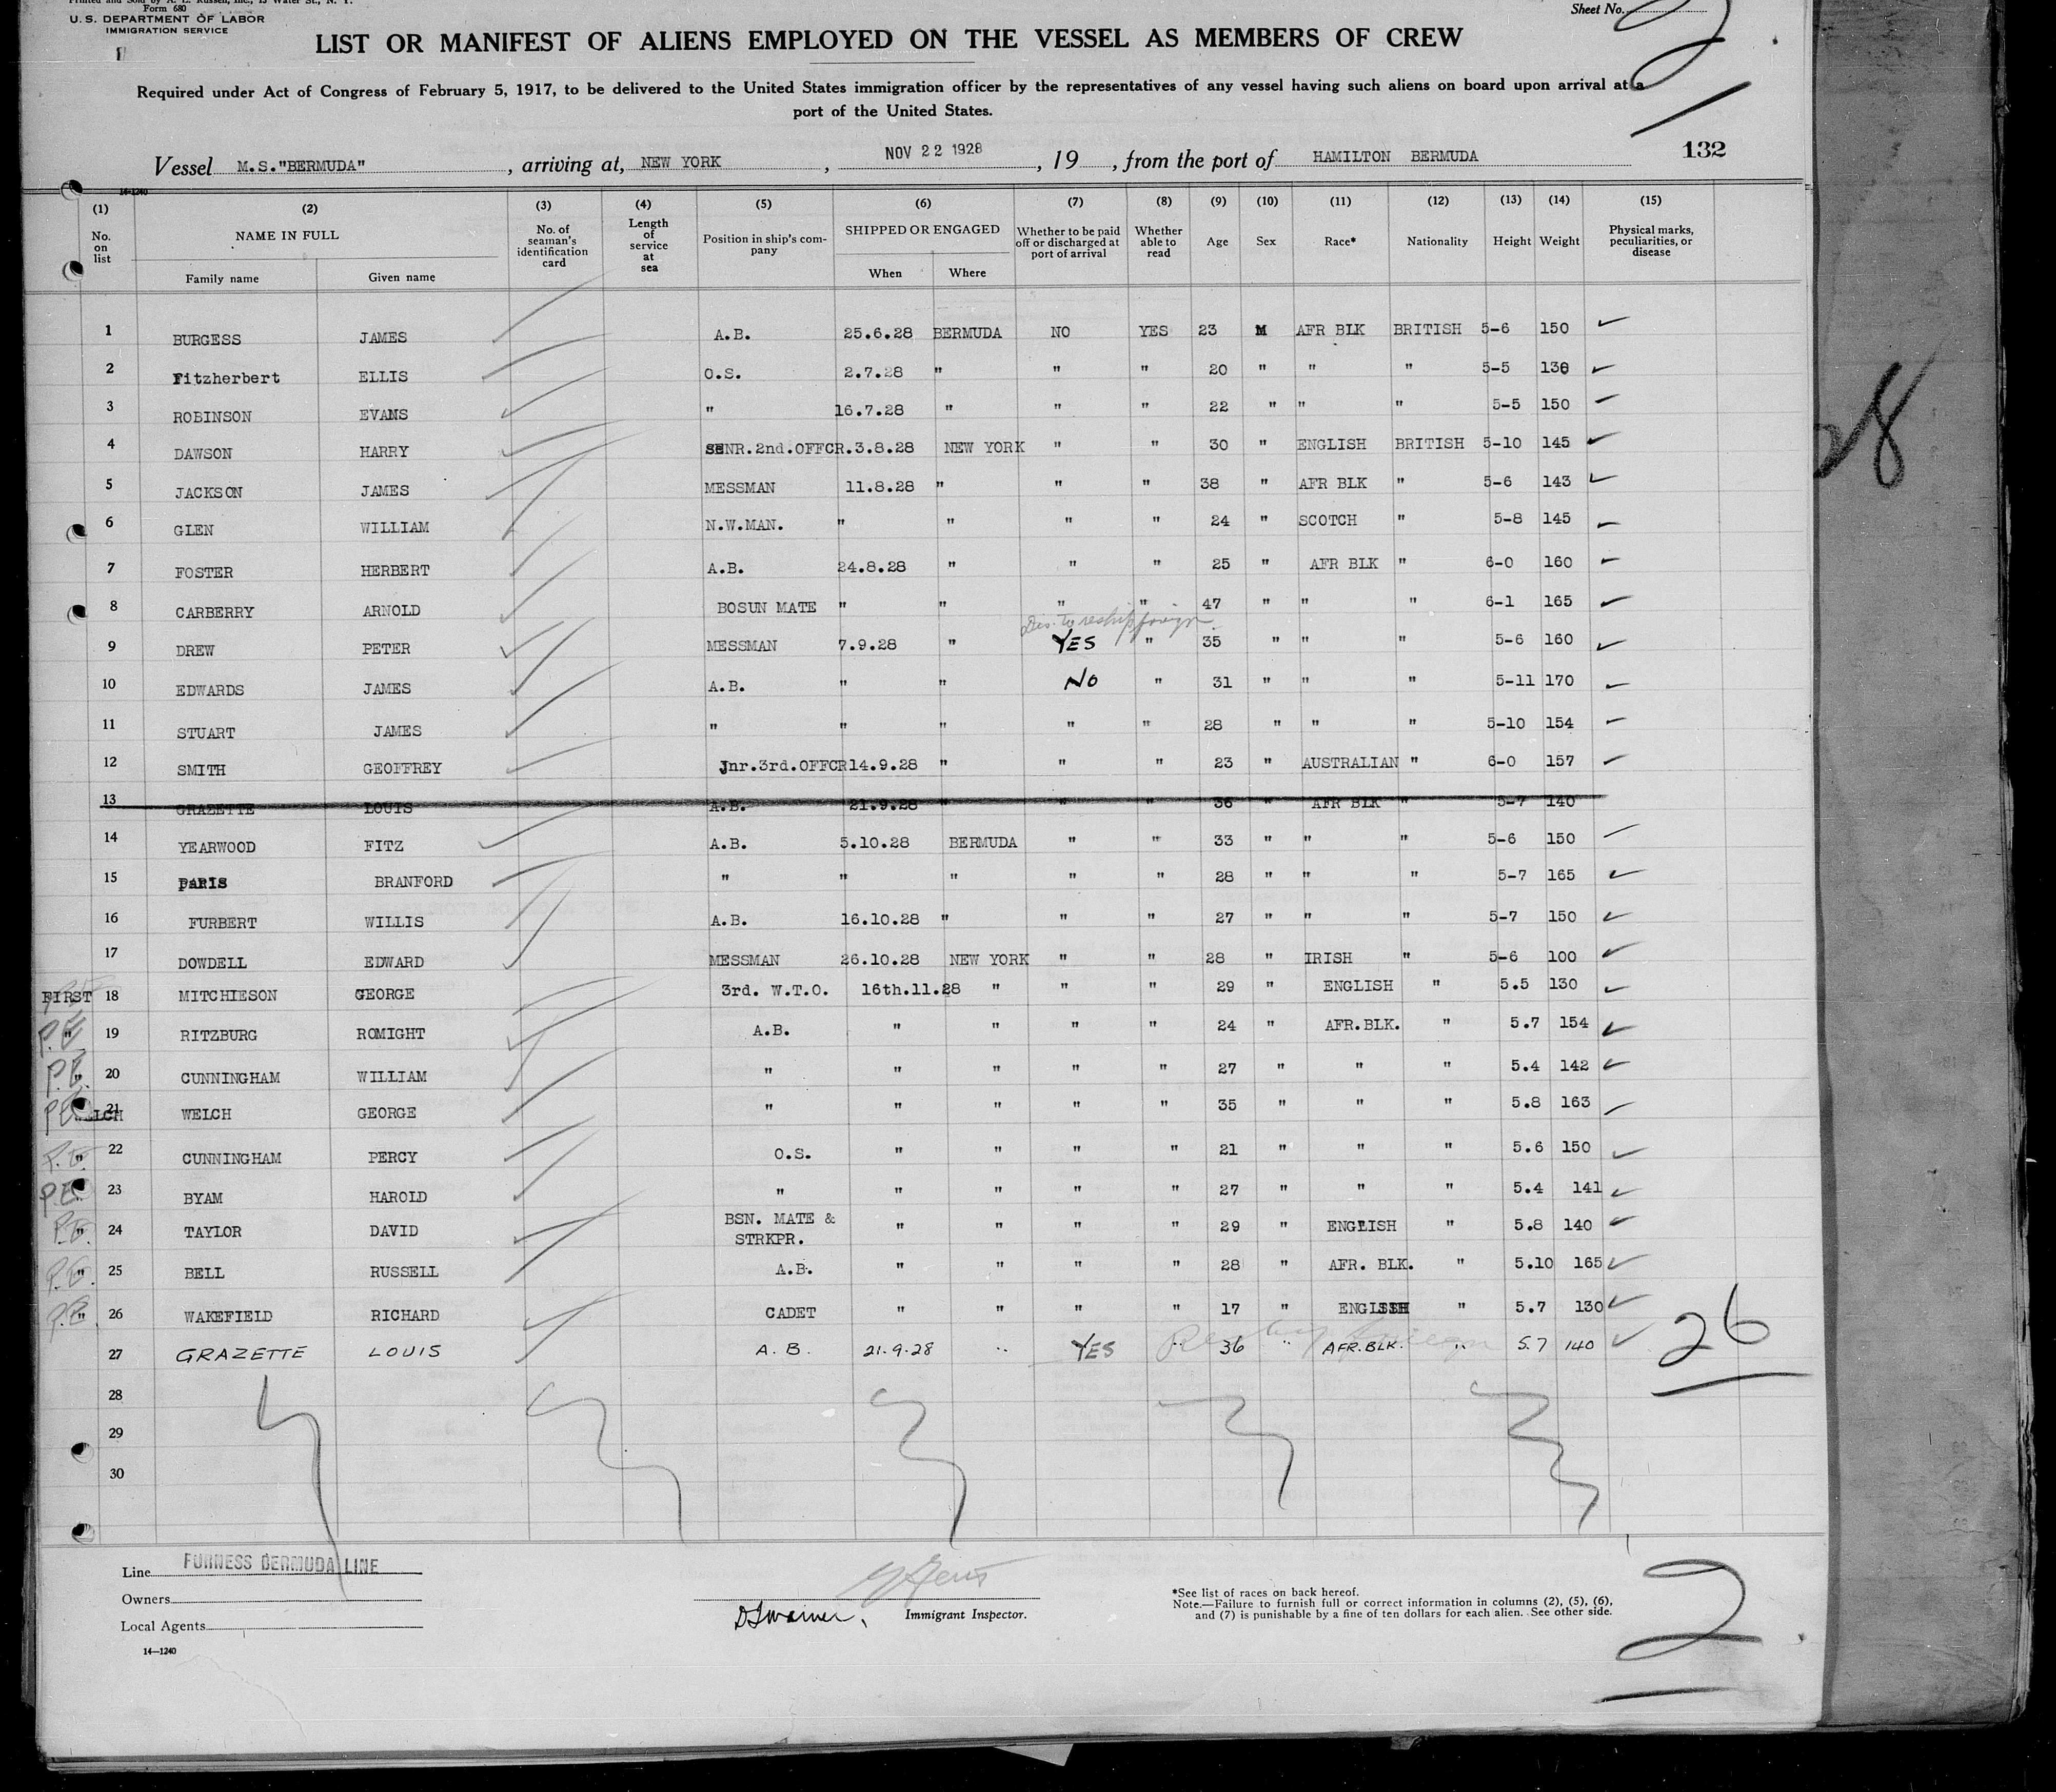 Form 680
U. S. DEPARTMENT OF LABOR
IMMIGRATION SERVICE
Sheet No.
LIST OR MANIFEST OF ALIENS EMPLOYED ON THE VESSEL AS MEMBERS OF CREW
Required under Act of Congress of February 5, 1917, to be delivered to the United States immigration officer by the representatives of any vessel having such aliens on board upon arrival at a
port of the United States.
Vessel M.S."BERMUDA" , arriving at, NEW YORK , NOV 22 1928 , 19 , from the port of HAMILTON BERMUDA 132
14-1240
(1) (2) (3) (4) (5) (6) (7) (8) (9) (10) (11) (12) (13) (14) (15)
No. on list NAME IN FULL No. of seaman's identification card Length of service at sea Position in ship's company SHIPPED OR ENGAGED Whether to be paid off or discharged at port of arrival Whether able to read Age Sex Race* Nationality Height Weight Physical marks, peculiarities, or disease
Family name Given name When Where
1 BURGESS JAMES A.B. 25.6.28 BERMUDA NO YES 23 M AFR BLK BRITISH 5-6 150
2 Fitzherbert ELLIS O.S. 2.7.28 " " " 20 " " " 5-5 136
3 ROBINSON EVANS " 16.7.28 " " " 22 " " " 5-5 150
4 DAWSON HARRY SENR.2nd.OFFCR. 3.8.28 NEW YORK " " 30 " ENGLISH BRITISH 5-10 145
5 JACKSON JAMES MESSMAN 11.8.28 " " " 38 " AFR BLK " 5-6 143
6 GLEN WILLIAM N.W.MAN. " " " " 24 " SCOTCH " 5-8 145
7 FOSTER HERBERT A.B. 24.8.28 " " " 25 " AFR BLK " 6-0 160
8 CARBERRY ARNOLD BOSUN MATE " " " " 47 " " " 6-1 165
Des. to reship foreign
9 DREW PETER MESSMAN 7.9.28 " YES " 35 " " " 5-6 160
10 EDWARDS JAMES A.B. " " NO " 31 " " " 5-11 170
11 STUART JAMES " " " " " 28 " " " 5-10 154
12 SMITH GEOFFREY Jnr.3rd.OFFCR 14.9.28 " " " 23 " AUSTRALIAN " 6-0 157
13 GRAZETTE LOUIS A.B. 21.9.28 " " " 36 " AFR BLK " 5-7 140
14 YEARWOOD FITZ A.B. 5.10.28 BERMUDA " " 33 " " " 5-6 150
15 PARIS BRANFORD " " " " " 28 " " " 5-7 165
16 FURBERT WILLIS A.B. 16.10.28 " " " 27 " " " 5-7 150
17 DOWDELL EDWARD MESSMAN 26.10.28 NEW YORK " " 28 " IRISH " 5-6 100
FIRST 18 MITCHIESON GEORGE 3rd. W.T.O. 16th.11.28 " " " 29 " ENGLISH " 5.5 130
P.E. " 19 RITZBURG ROMIGHT A.B. " " " " 24 " AFR.BLK. " 5.7 154
P.E. " 20 CUNNINGHAM WILLIAM " " " " " 27 " " " 5.4 142
P.E. 21 WELCH GEORGE " " " " " 35 " " " 5.8 163
P.E. " 22 CUNNINGHAM PERCY O.S. " " " " 21 " " " 5.6 150
P.E. 23 BYAM HAROLD " " " " " 27 " " " 5.4 141
P.E. " 24 TAYLOR DAVID BSN. MATE & STRKPR. " " " " 29 " ENGLISH " 5.8 140
P.E. " 25 BELL RUSSELL A.B. " " " " 28 " AFR. BLK. " 5.10 165
P.E. " 26 WAKEFIELD RICHARD CADET " " " " 17 " ENGLISH " 5.7 130
27 GRAZETTE LOUIS A.B. 21.9.28 " YES " 36 " AFR.BLK. " 5.7 140
26
28
29
30
28
Line FURNESS BERMUDA LINE
Owners
Local Agents
Immigrant Inspector.
14—1240
*See list of races on back hereof.
Note.—Failure to furnish full or correct information in columns (2), (5), (6),
and (7) is punishable by a fine of ten dollars for each alien. See other side.
2